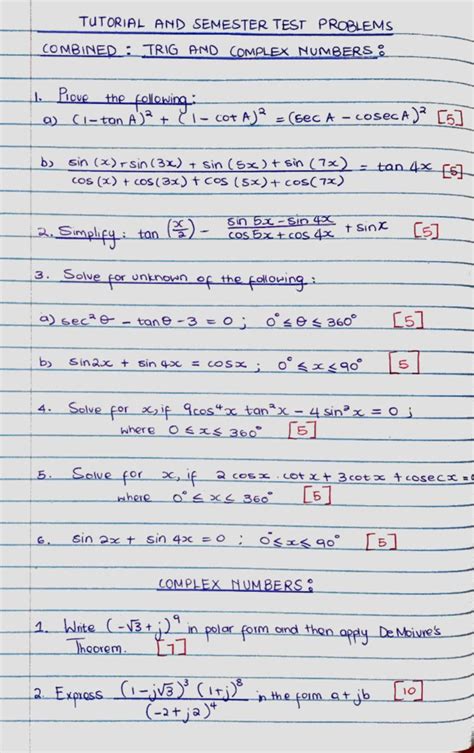 TUTORIAL AND SEMESTER TEST PROBLEMS
COMBINED : TRIG AND COMPLEX NUMBERS :
1. Prove the following :
a) (1 - tan A)² + (1 - cot A)² = (sec A - cosec A)² [5]
b) sin(x) + sin(3x) + sin(5x) + sin(7x) / cos(x) + cos(3x) + cos(5x) + cos(7x) = tan 4x [5]
2. Simplify : tan (x/2) - sin 5x - sin 4x / cos 5x + cos 4x + sin x [5]
3. Solve for unknown of the following :
a) sec²θ - tanθ - 3 = 0 ; 0° ≤ θ ≤ 360° [5]
b) sin2x + sin 4x = cosx ; 0° ≤ x ≤ 90° [5]
4. Solve for x, if 9cos⁴x tan²x - 4 sin²x = 0 ;
where 0 ≤ x ≤ 360° [5]
5. Solve for x, if 2 cosx . cotx + 3cotx + cosecx = 0
where 0° ≤ x ≤ 360° [5]
6. sin 2x + sin 4x = 0 ; 0° ≤ x ≤ 90° [5]
COMPLEX NUMBERS :
1. Write (-√3 + j)⁹ in polar form and then apply De Moivre's
Theorem. [7]
2. Express (1 - j√3)³ (1 + j)⁸ / (-2 + j2)⁴ in the form a + jb [10]